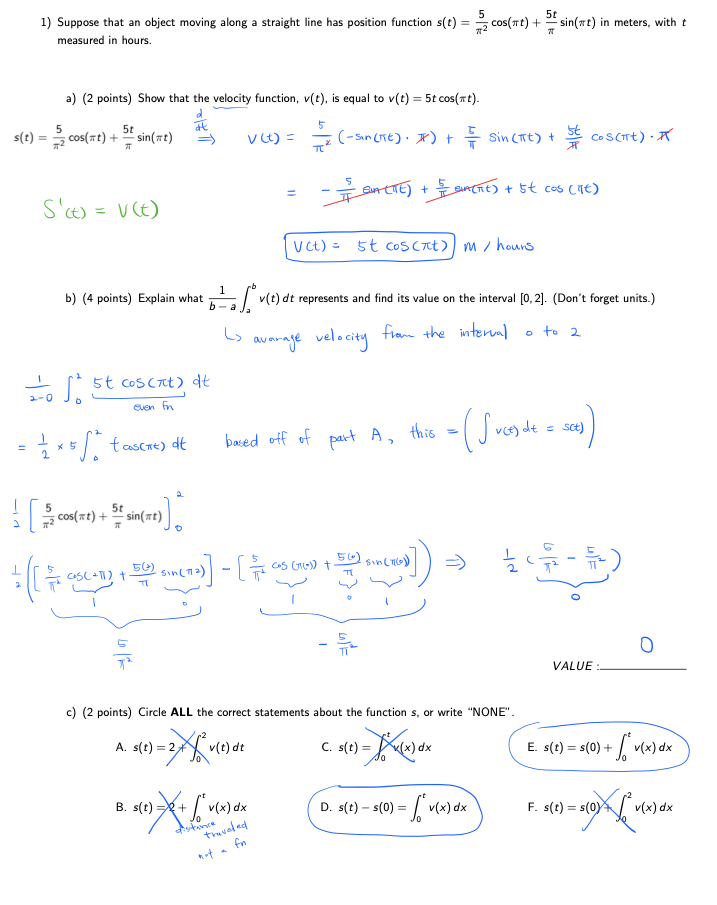 1) Suppose that an object moving along a straight line has position function s(t) = 5/π² cos(πt) + 5t/π sin(πt) in meters, with t
measured in hours.
a) (2 points) Show that the velocity function, v(t), is equal to v(t) = 5t cos(πt).
s(t) = 5/π² cos(πt) + 5t/π sin(πt) d/dt ⇒ v(t) = 5/π² (-sin(πt) · π) + 5/π sin(πt) + 5t/π cos(πt) · π
= - 5/π sin(πt) + 5/π sin(πt) + 5t cos(πt)
S'(t) = V(t)
V(t) = 5t cos(πt) m / hours
b) (4 points) Explain what 1/(b − a) ∫_a^b v(t) dt represents and find its value on the interval [0, 2]. (Don't forget units.)
↳ avarage velocity from the interval 0 to 2
1/(2-0) ∫_0^2 5t cos(πt) dt
even fn
= 1/2 × 5 ∫_0^2 t cos(πt) dt based off of part A, this = (∫ v(t) dt = s(t))
1/2 [ 5/π² cos(πt) + 5t/π sin(πt) ]_0^2
1/2 ([ 5/π² cos(2π) + 5(2)/π sin(π2) ] - [ 5/π² cos(π(0)) + 5(0)/π sin(π(0)) ]) ⇒ 1/2 ( 5/π² - 5/π² )
1 0 1 0 1 0
5/π² - 5/π²
VALUE : 0
c) (2 points) Circle ALL the correct statements about the function s, or write "NONE".
A. s(t) = 2 + ∫_0^2 v(t) dt C. s(t) = ∫_0^t v(x) dx E. s(t) = s(0) + ∫_0^t v(x) dx
B. s(t) = 2 + ∫_0^t v(x) dx D. s(t) − s(0) = ∫_0^t v(x) dx F. s(t) = s(0) + ∫_0^2 v(x) dx
distance
traveled
not a fn